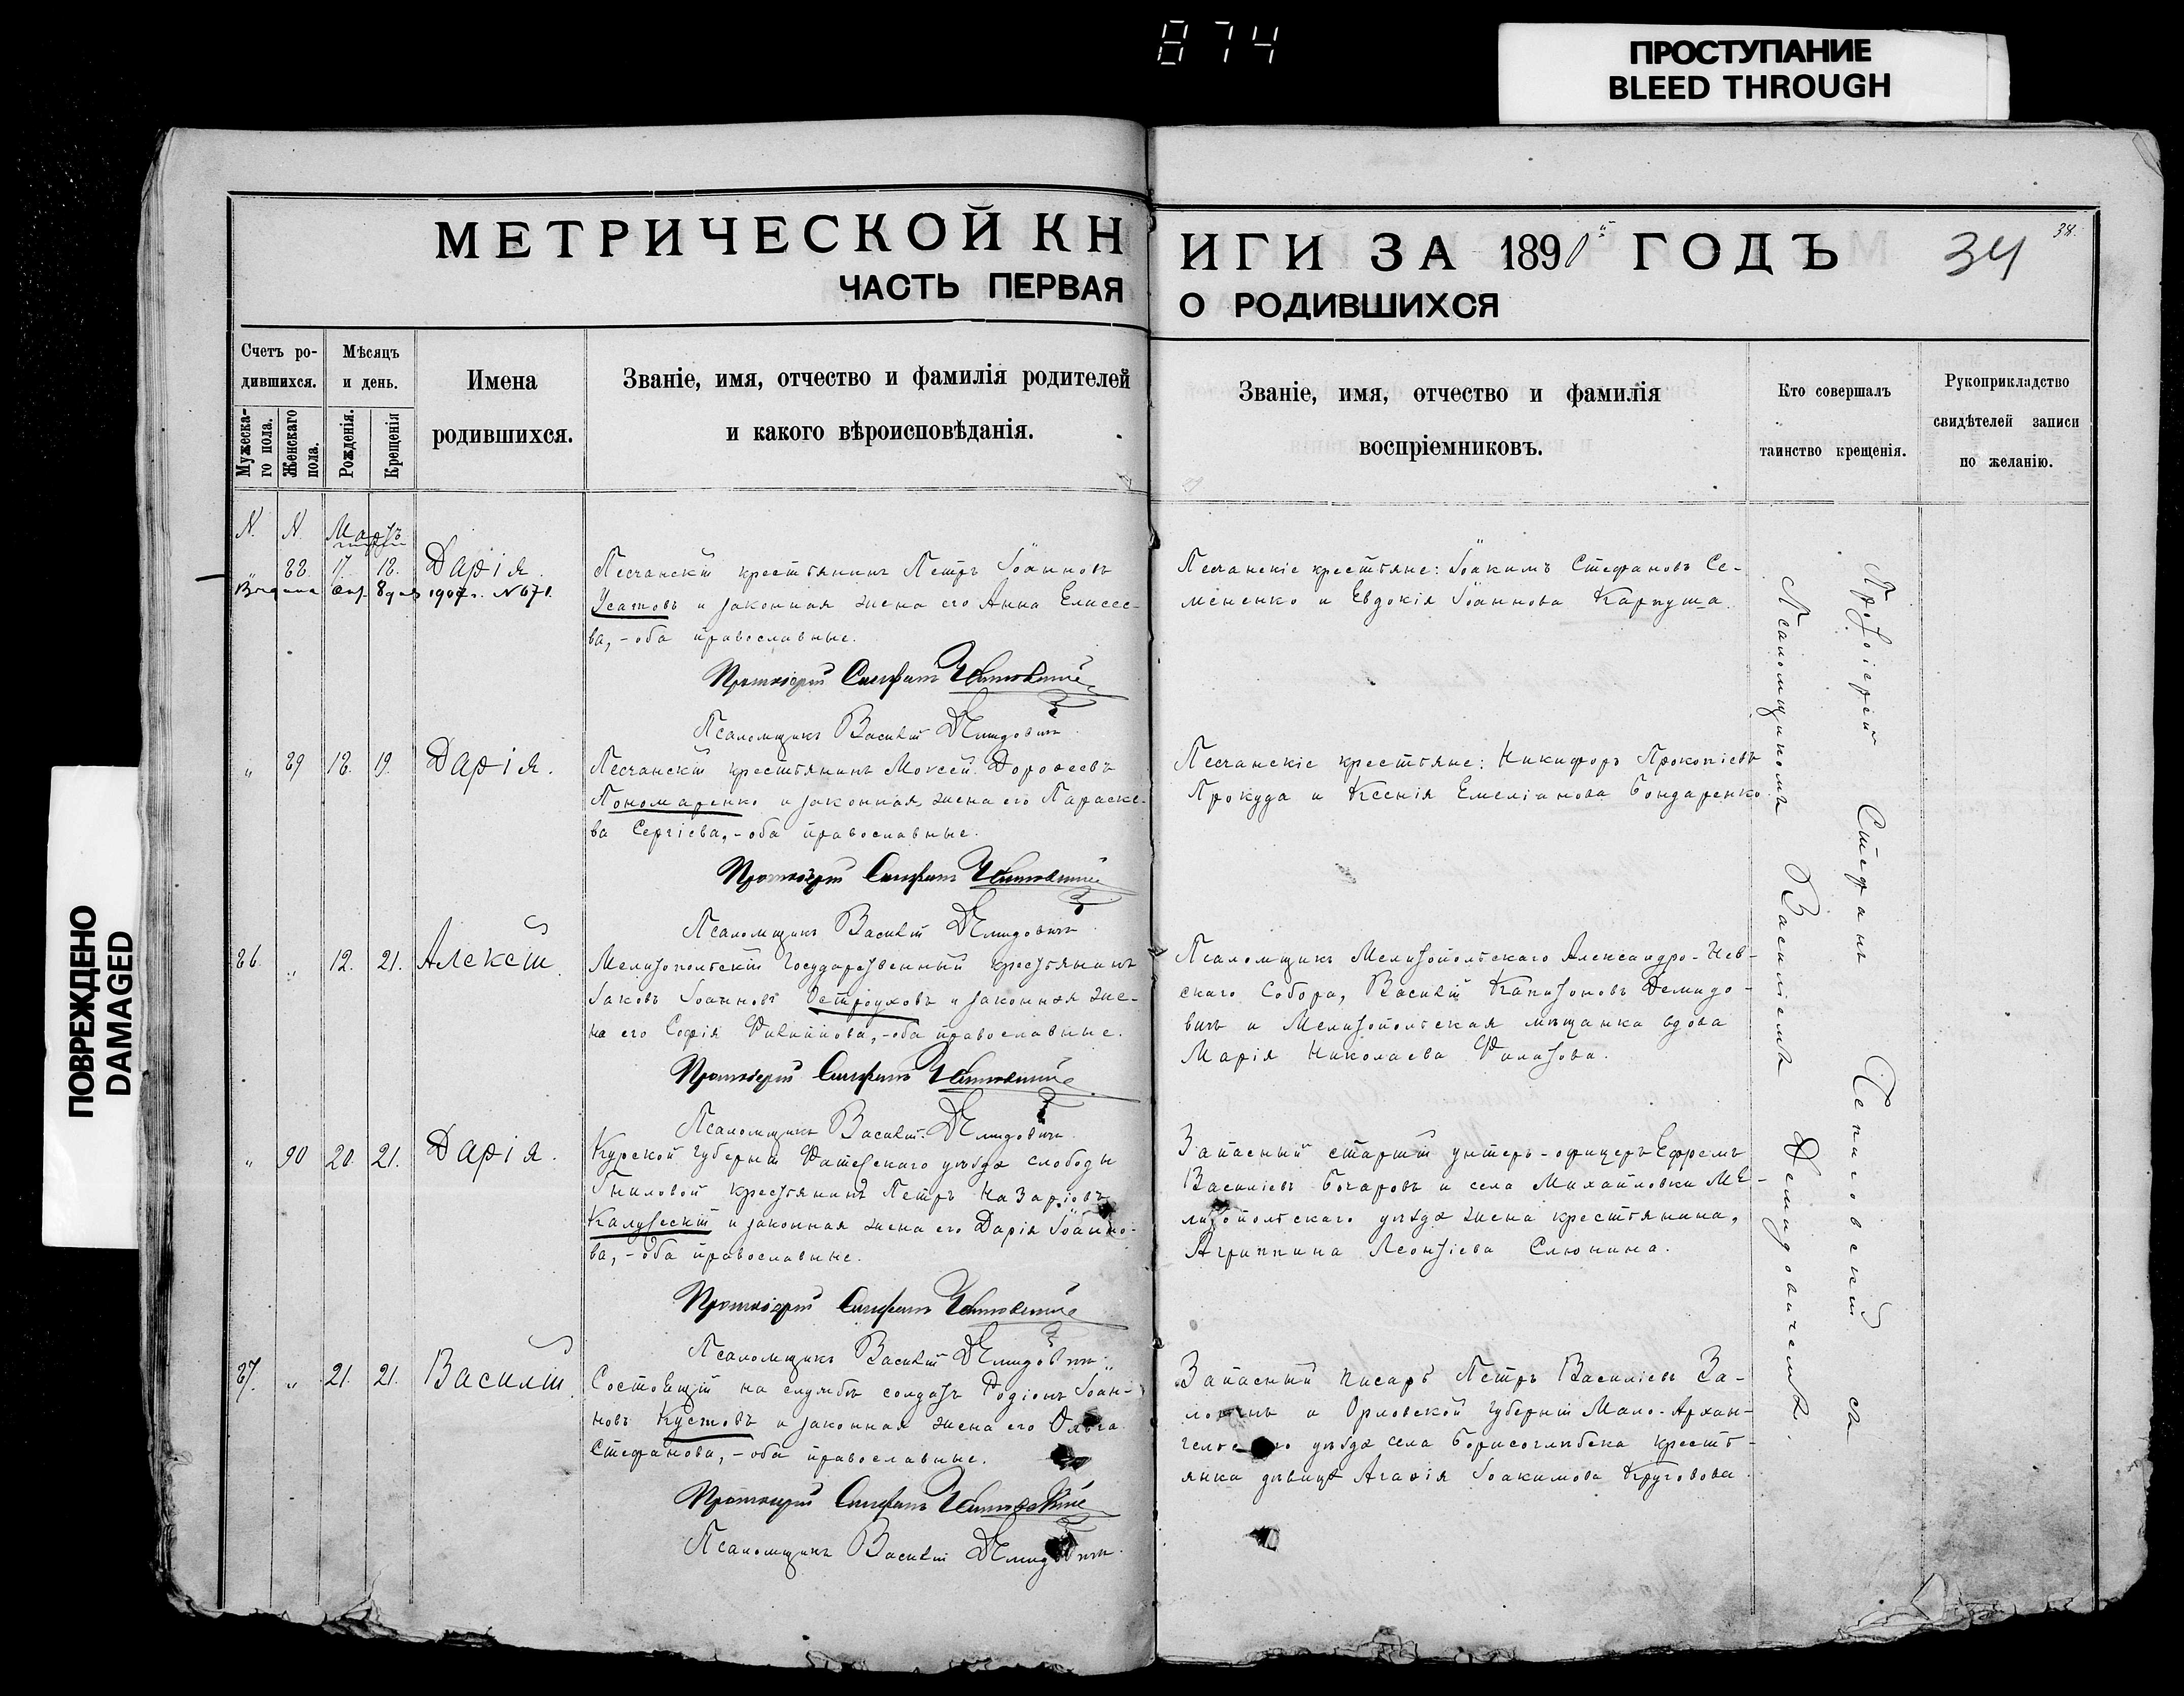 874
ПРОСТУПАНИЕ
BLEED THROUGH
ПОВРЕЖДЕНО
DAMAGED
МЕТРИЧЕСКОЙ КНИГИ ЗА 1891й ГОДЪ
34
34.
ЧАСТЬ ПЕРВАЯ О РОДИВШИХСЯ
Счетъ ро-
дившихся.
Мужеска-
го пола.
Женскаго
пола.
Мѣсяцъ
и день.
Рожденія.
Крещенія
Имена
родившихся.
Званіе, имя, отчество и фамилія родителей
и какого вѣроисповѣданія.
Званіе, имя, отчество и фамилія
воспріемниковъ.
Кто совершалъ
таинство крещенія.
Рукоприкладство
свидѣтелей записи
по желанію.
N. N. Мартъ
88. 17. 18. Дарія.
1907 г. N 671.
Песчанскій крестьянинъ Петръ Іоанновъ
Усатовъ и законная жена его Анна Елисее-
ва, - оба православные.
Протоіерей Стефанъ
Псаломщикъ Василій Демидовичъ
Песчанскіе крестьяне: Іоакимъ Стефановъ Се-
мененко и Евдокія Іоаннова Карпуша.
" 89 18. 19. Дарія.
Песчанскій крестьянинъ Моѵсей Дороѳеевъ
Пономаренко и законная жена его Параске-
ва Сергіева, - оба православные.
Протоіерей Стефанъ
Псаломщикъ Василій Демидовичъ
Песчанскіе крестьяне: Никифоръ Прокопіевъ
Прокуда и Ксенія Емеліанова Бондаренко.
86. " 12. 21. Алексій.
Мелитопольскій Государственный крестьянинъ
Іаковъ Іоанновъ Остроуховъ и законная же-
на его Софія Филиппова, - оба православные.
Протоіерей Стефанъ
Псаломщикъ Василій Демидовичъ
Псаломщикъ Мелитопольскаго Александро-Нев-
скаго Собора, Василій Капитоновъ Демидо-
вичъ и Мелитопольская мѣщанка вдова
Марія Николаева Филатова.
" 90 20. 21. Дарія.
Курской губерніи Фатежскаго уѣзда слободы
Гниловой крестьянинъ Петръ Назаріовъ
и законная жена его Дарія Іоанно-
ва, - оба православные.
Протоіерей Стефанъ
Псаломщикъ Василій Демидовичъ
Запасный старшій унтеръ-офицеръ Ефремъ
Василіевъ Бочаровъ и села Михайловки Ме-
литопольскаго уѣзда жена крестьянина,
Агриппина Леонтіева Слюнина.
87. " 21. 21. Василій.
Состоящій на службѣ солдатъ Родіонъ Іоан-
новъ Кустовъ и законная жена его Ольга
Стефанова, - оба православные.
Протоіерей Стефанъ
Псаломщикъ Василій Демидовичъ.
Запасный писарь Петръ Василіевъ За-
и Орловской губерніи Мало-Архан-
уѣзда села Борисоглѣбска кресть-
янка дѣвица Агаѳія Іоакимова Круговова.
Протоіерей Стефанъ съ
Псаломщикомъ Василіемъ Демидовичемъ.